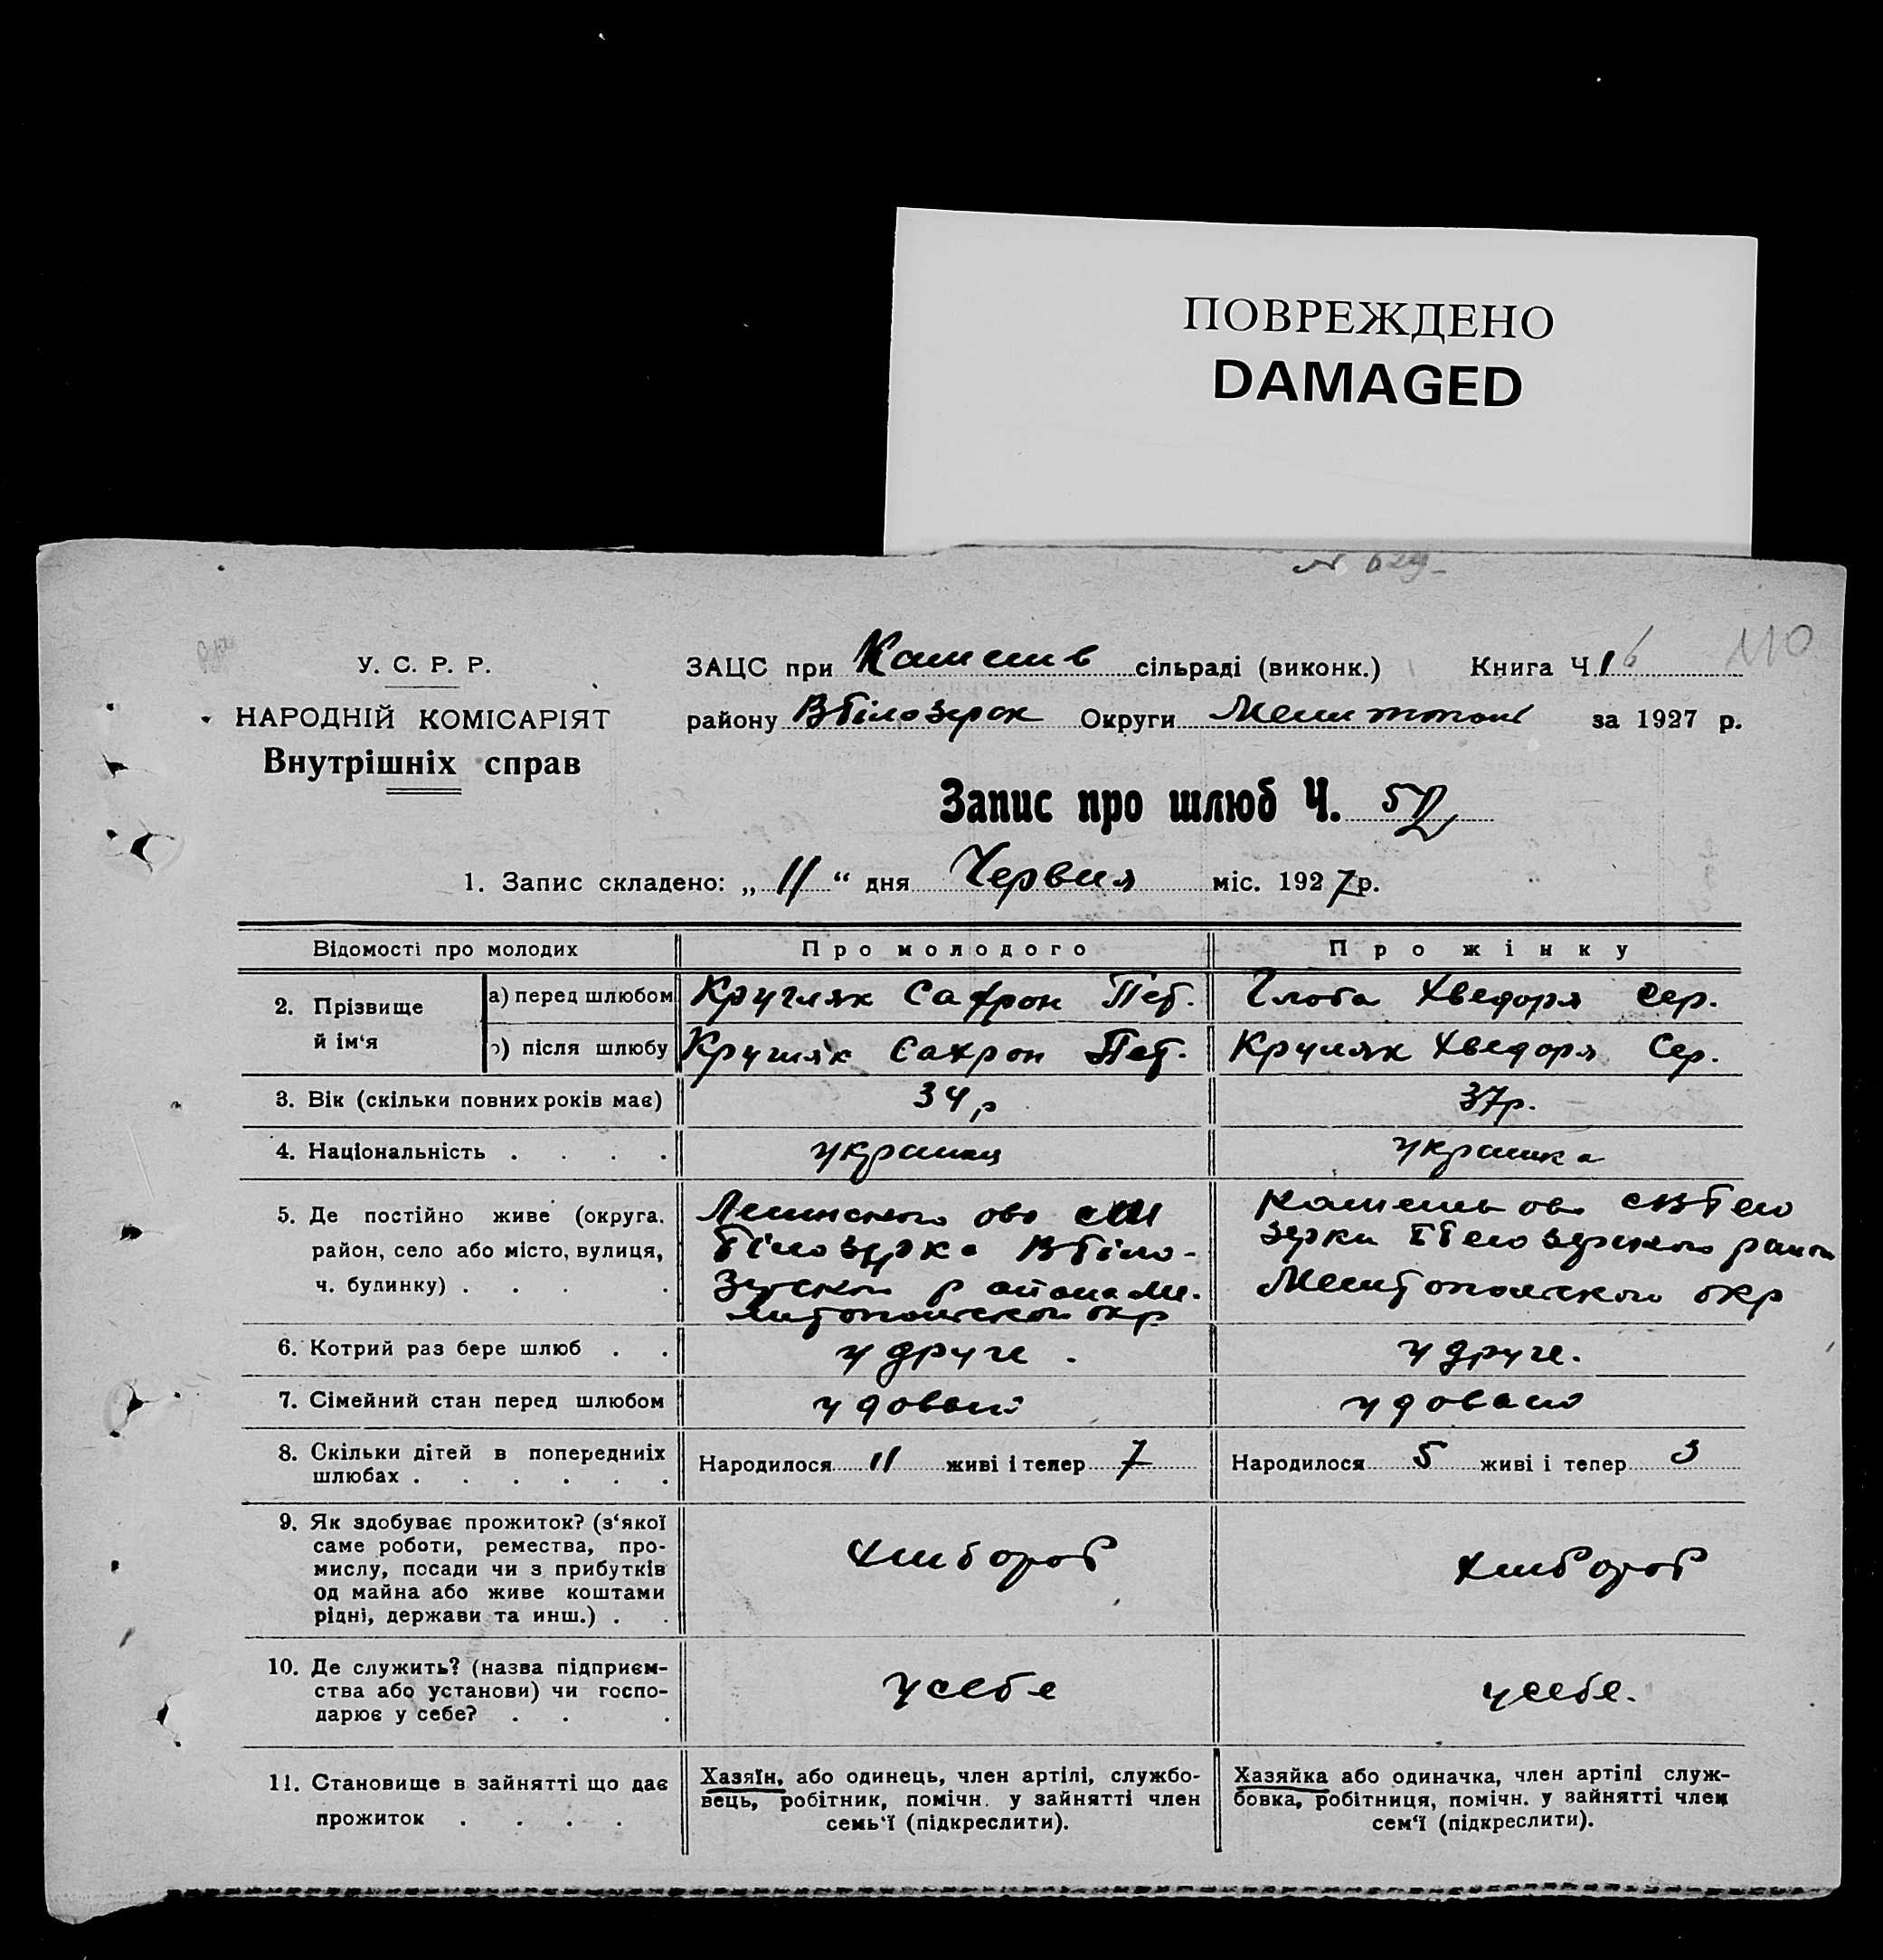 ПОВРЕЖДЕНО
DAMAGED
У. С. Р. Р.
НАРОДНІЙ КОМІСАРІЯТ
Внутрішніх справ
110
ЗАЦС при сільраді (виконк.) Книга Ч. 1
району ВБілозерск Округи Мелитопол за 1927 р.
Запис про шлюб Ч. 52
1. Запис складено: „ 11 “ дня Червня міс. 1927 р.
Відомості про молодих Про молодого Про жінку
2. Прізвище й ім‘я
а) перед шлюбом Кругляк Сахрон Пет. Глоба Хведоря Сер.
б) після шлюбу Кругляк Сахрон Пет. Кругляк Хведоря Сер.
3. Вік (скільки повних років має) 34 р 37 р.
4. Національність . . . . украинец украинка
5. Де постійно живе (округа,
район, село або місто, вулиця,
ч. будинку) . . . .
Ленинского
Білозерка ВБіло-
зерской района Ме-
литопольской окр
Зерки района
Мелитопольского окр
6. Котрий раз бере шлюб . . у друге . у друге.
7. Сімейний стан перед шлюбом удовый удовый
8. Скільки дітей в попередніх
шлюбах . . . . . .
Народилося 11 живі і тепер 7
Народилося 5 живі і тепер 3
9. Як здобуває прожиток? (з‘якої
саме роботи, ремества, про-
мислу, посади чи з прибутків
од майна або живе коштами
рідні, держави та инш.) . .
хлибороб
хлибороб
10. Де служить? (назва підприєм-
ства або установи) чи госпо-
дарює у себе? . . .
у себе
у себе.
11. Становище в зайнятті що дає
прожиток . . . .
Хазяїн, або одинець, член артілі, службо-
вець, робітник, помічн. у зайнятті член
семь‘ї (підкреслити).
Хазяйка або одиначка, член артілі служ-
бовка, робітниця, помічн. у зайнятті член
сем‘ї (підкреслити).